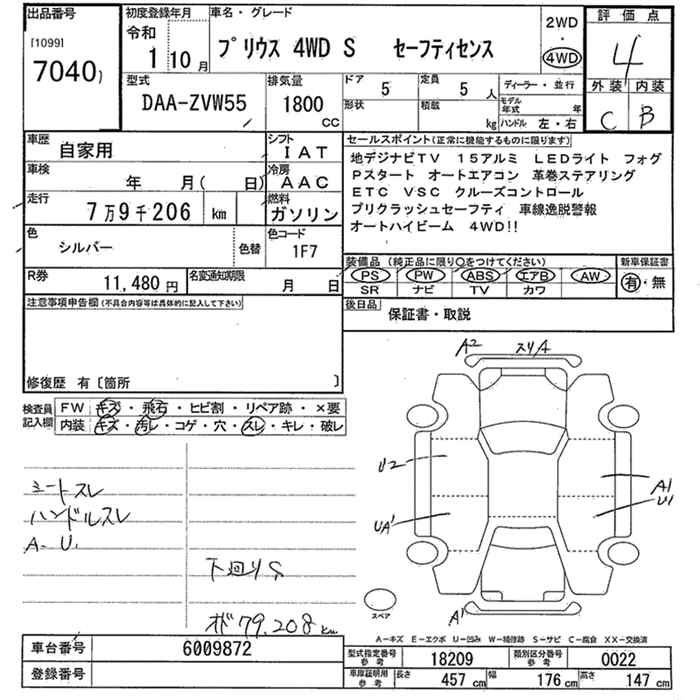 出品番号
[1099]
7040
初度登録年月
令和
1 10月
車名・グレード
プリウス 4WD S セーフティセンス
2WD
・
4WD
評価点
4
外装 内装
C B
型式
DAA-ZVW55
排気量
1800
cc
ドア 5
形状
定員 5 人
積載 kg
ディーラー・並行
モデル年式 年
ハンドル 左・右
車歴
自家用
シフト
IAT
車検
年 月( 日)
冷房
AAC
走行
7万9千206 km
燃料
ガソリン
色
シルバー
色替
色コード
1F7
R券
11,480円
名変通知期限
月 日
セールスポイント(正常に機能するものに限ります)
地デジナビTV 15アルミ LEDライト フォグ
Pスタート オートエアコン 革巻ステアリング
ETC VSC クルーズコントロール
プリクラッシュセーフティ 車線逸脱警報
オートハイビーム 4WD!!
装備品(純正品に限り○をつけてください)
PS PW ABS エアB AW
SR ナビ TV カワ
新車保証書
有・無
後日品
保証書・取説
注意事項申告欄(不具合内容等は具体的に記入して下さい)
修復歴 有〔箇所 〕
検査員記入欄
FW キズ・飛石・ヒビ割・リペア跡・×要
内装 キズ・汚レ・コゲ・穴・スレ・キレ・破レ
シートスレ
ハンドルスレ
A-U,
下廻りS
オド79.208km
A2 スリA
U2
UA1
A1
U1
A1
スペア
A-キズ E-エクボ U-凹み W-補修跡 S-サビ C-腐食 XX-交換済
車台番号
6009872
登録番号
型式指定番号参考
18209
類別区分番号参考
0022
車庫証明用参考
長さ 457 cm
幅 176 cm
高さ 147 cm